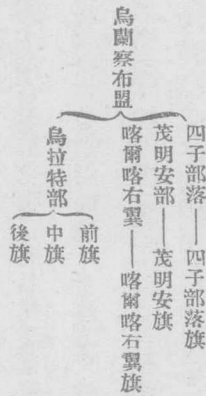 烏蘭察布盟
四子部落——四子部落旗
茂明安部——茂明安旗
喀爾喀右翼——喀爾喀右翼旗
烏拉特部
前旗
中旗
後旗